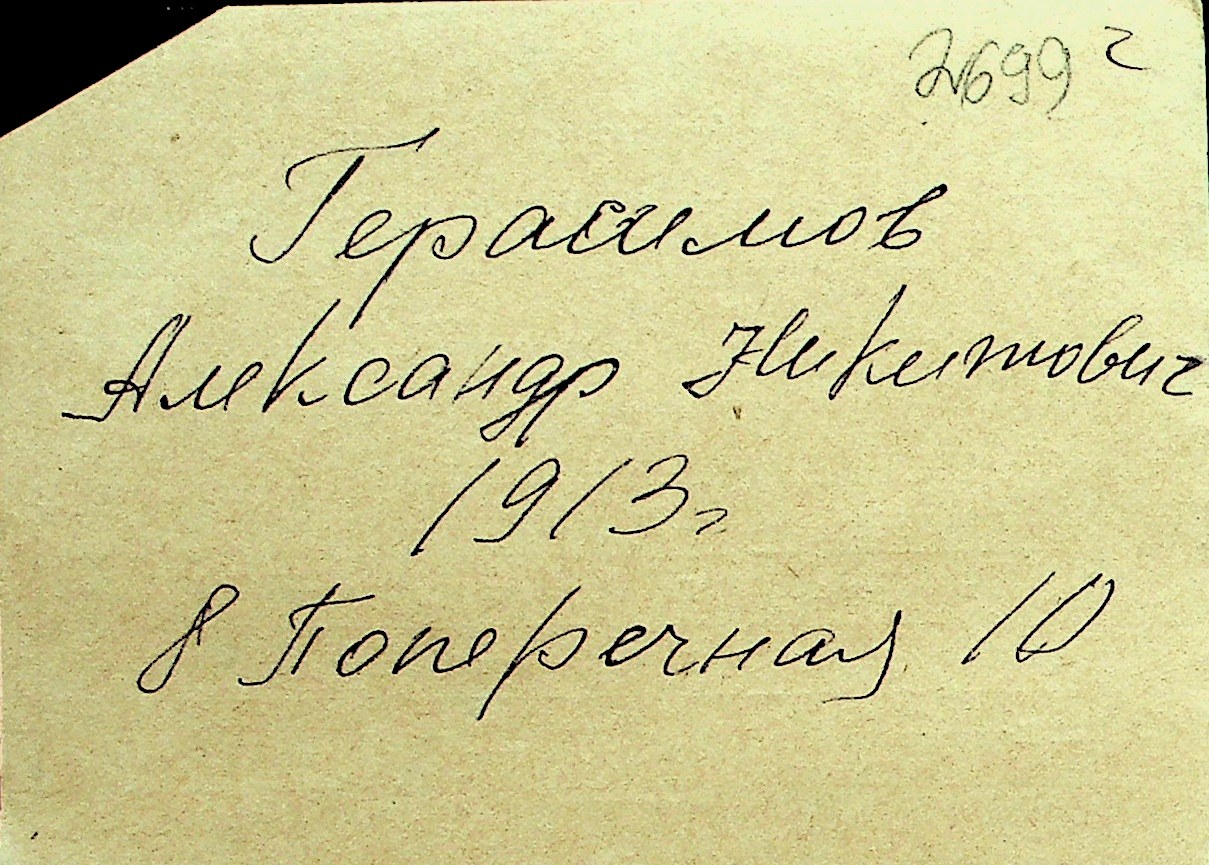 2699 г
Герасимов
Александр Никитович
1913 г
8 Поперечная 10